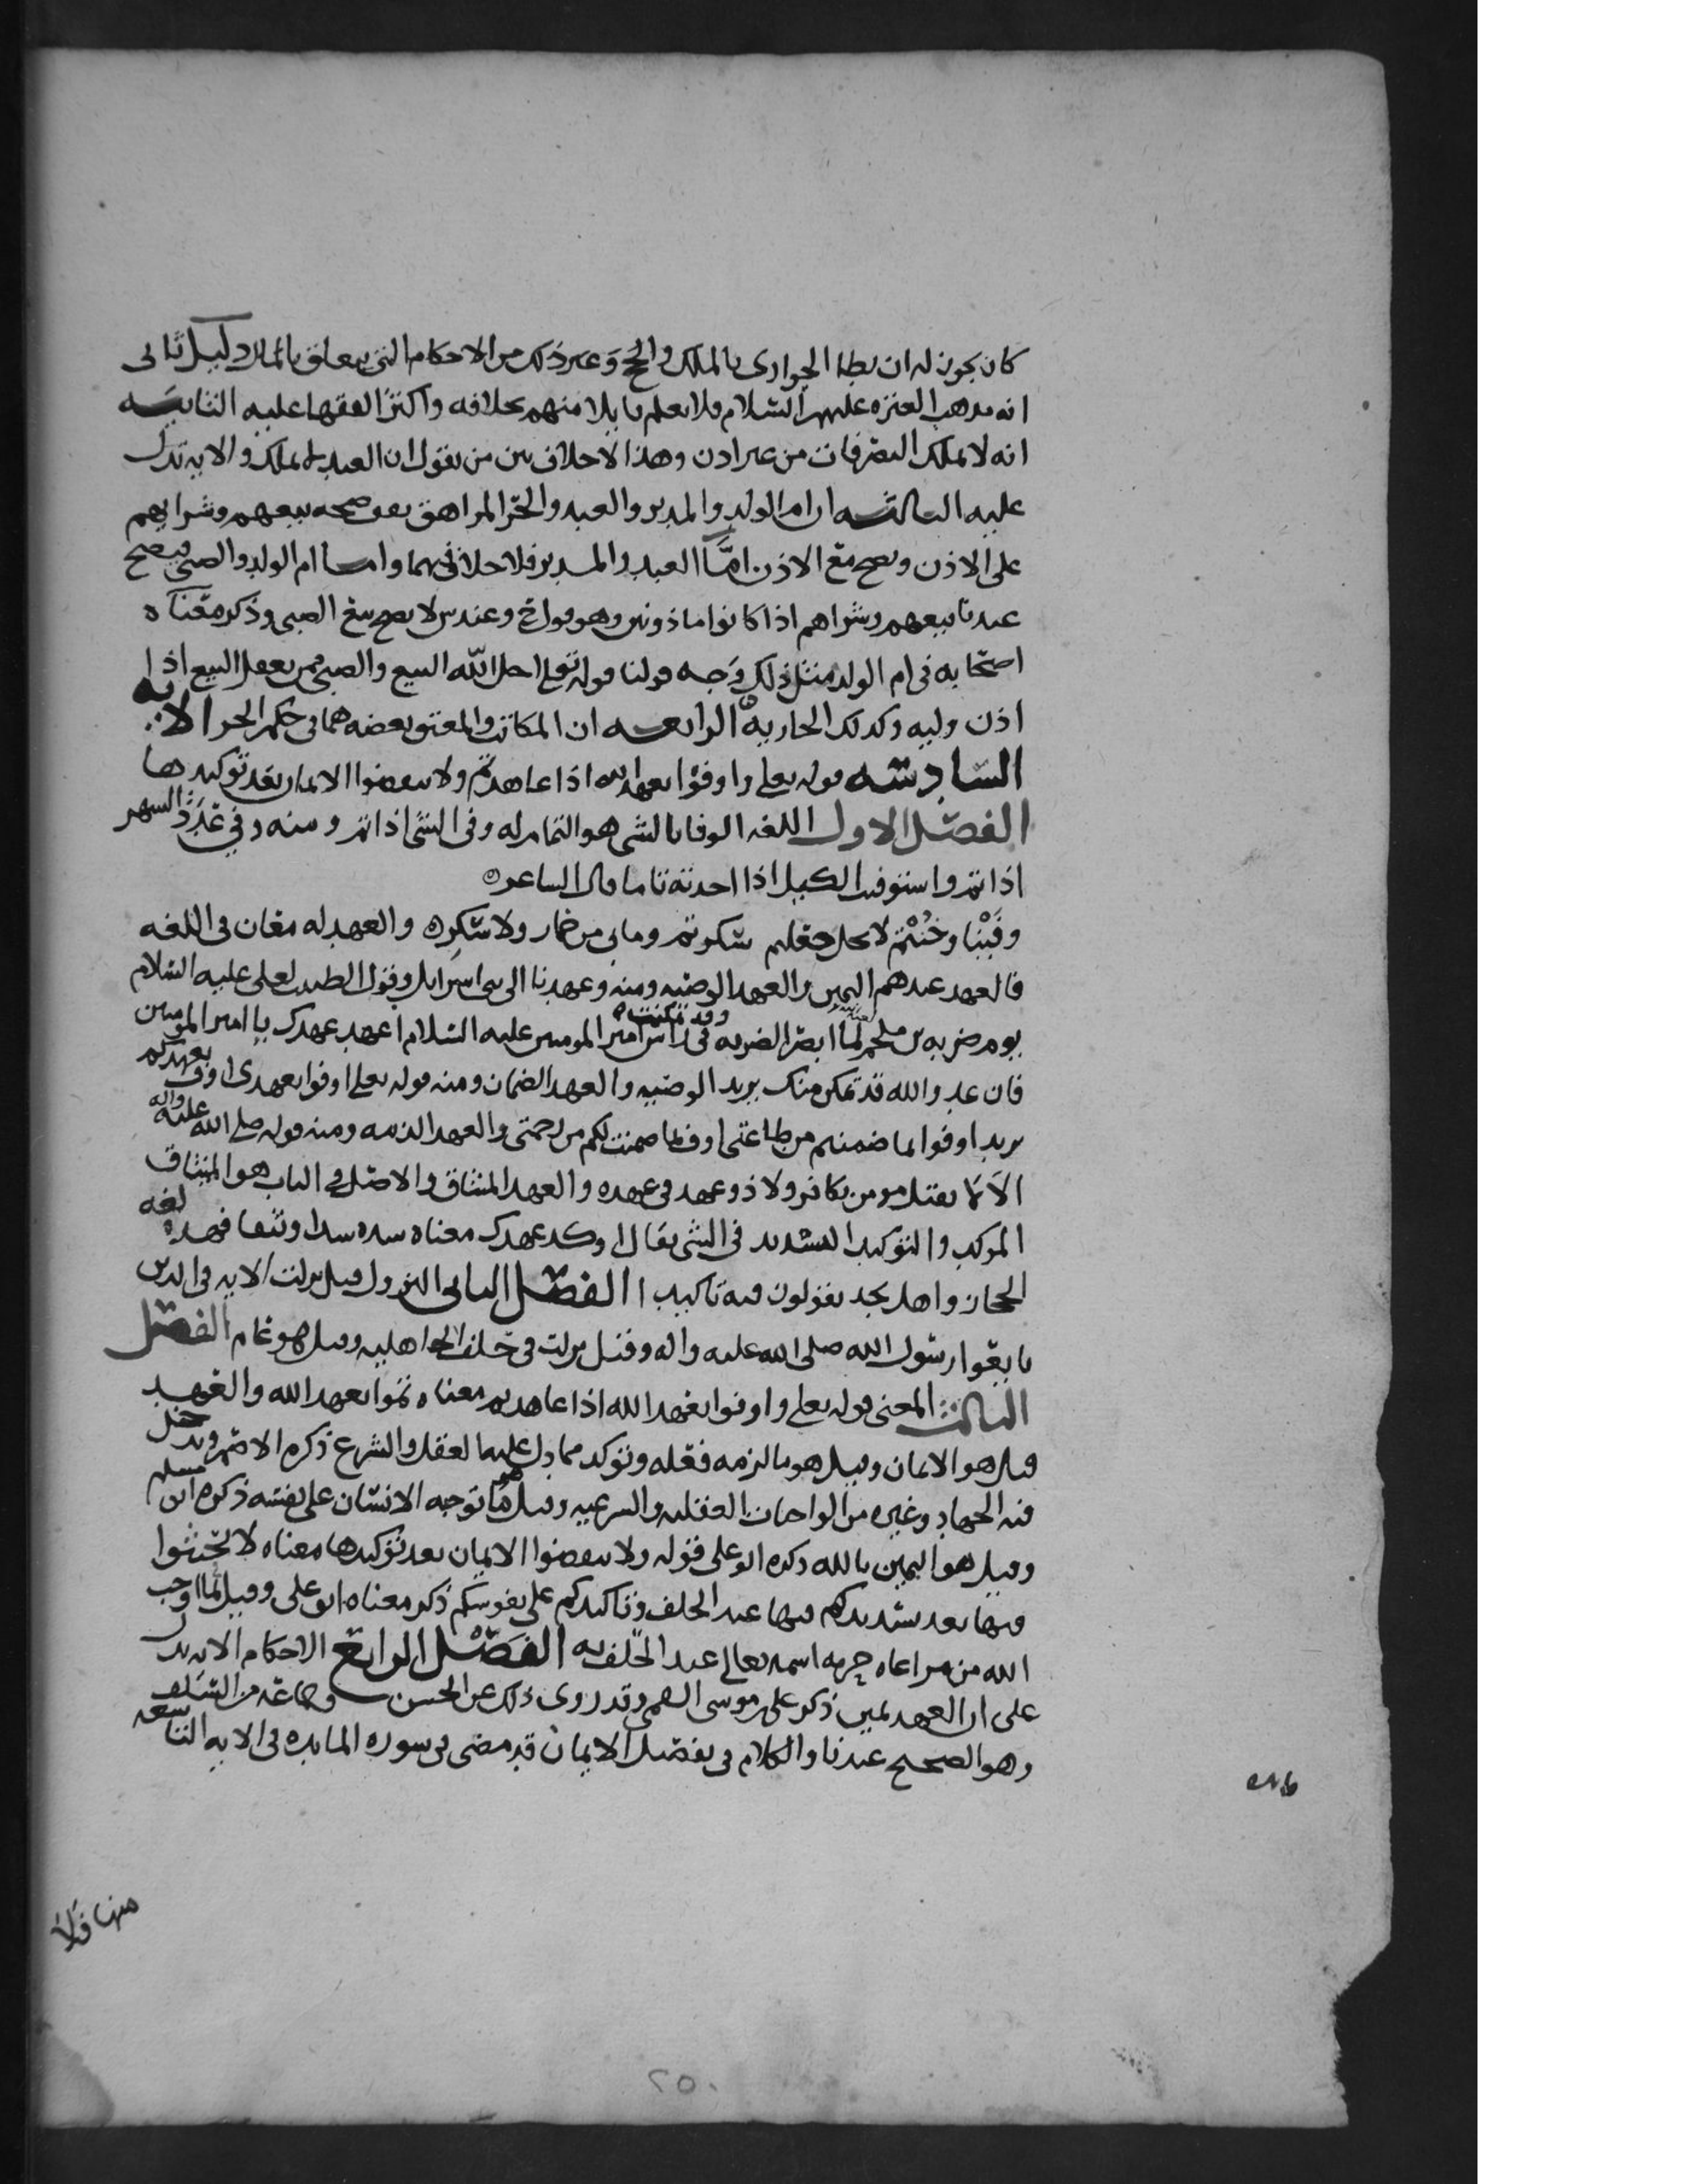 كان يجوز له ان يطا الجوارى بالملك والحج وغير ذلك من الاحكام التى يتعلق بالمال دليل ثانى
انه مذهب العتره عليهم السلام فلا يعلم قايلا منهم بخلافه واكثر الفقها عليه الثانيـه
انه لا يملك التصرفات من غير اذن وهذا لاخلاف بين من يقول ان العبد لا يملك والايه تدل
عليه الثالثـه ان ام الولد والمدبر والعبد والحر المراهق يقف صحه بيعهم وشرايهم
على الاذن ويصح مع الاذن امّا العبد والمدبر فلا خلاف فيهما واما ام الولد والصبى فيصح
عندنا بيعهم وشراهم اذا كانوا ماذونين وهو قول ح وعند س لا يصح بيع الصبى وذكر معناه
اصحابه فى ام الولد مثل ذلك وجه قولنا قوله تعلى احل الله البيع والصبى ممن يعقل البيع اذا
اذن وليه وكذلك الجاريه الرابعـه ان المكاتب والمعتق بعضه هما فى حكم الحر الايه
السادسه قوله تعلى واوفوا بعهد الله اذا عاهدتم ولا تنقضوا الايمان بعد توكيدها
الفصل الاول اللغه الوفا بالشى هو التمام له وفى الشى اذا تم ومنه وفى عدد الشهر
اذا تم واستوفيت الكيل اذا اخذته تاما قال الشاعر ه
وفَيْنا وخُنْتُم لا يحل جعلهم شكوتم ومابى من خمار ولا سُكره والعهد له معان فى اللغه
فالعهد عندهم اليمين والعهد الوصيه ومنه وعهدنا الى بنى اسرايل وقول الطبيب لعلى عليه السلام
يوم ضربه بن ملجم لعنه الله لما ابصر الضربه وقد تمكنت فى راس امير المومنين عليه السلام اعهد عهدك يا امير المومنين
فان عدو الله قد تمكن منك يريد الوصيه والعهد الضمان ومنه قوله تعلى اوفوا بعهدى اوف بعهدكم
يريد اوفوا لما ضمنتم من طاعتى اوف لما ضمنت لكم من رحمتى والعهد الذمه ومنه قوله صلى الله عليه واله
الا لا يقتل مومن بكافر ولا ذو عهد فى عهده والعهد الميثاق والاصل فى الباب هو الميثاق
الموكد والتوكيد التشديد فى الشى يقال اوكد عهدك معناه شده شدا وثيقا فهذه لغه
الحجاز واهل نجد يقولون فيه تاكيدا الفصل الثانى النزول قيل نزلت الايه فى الذين
بايعوا رسول الله صلى الله عليه واله وقيل نزلت فى حلف الجاهليه وقيل هو عام الفصل
الثالث المعنى قوله تعلى واوفوا بعهد الله اذا عاهدتم معناه تموا بعهد الله والعهد
قيل هو الايمان وقيل هو ما الزمه فعله وتوكد مما دل عليه العقل والشرع ذكره الاصم ويدخل
فيه الجهاد وغيره من الواجبات العقليه والشرعيه وقيل هو ما توجبه الانسان على نفسه ذكره ابن مسلم
وقيل هو اليمين بالله ذكره ابو على قوله ولا تنقضوا الايمان بعد توكيدها معناه لا تحنثوا
فيها بعد تشديدكم فيها عند الحلف وتاكيدكم على نفوسكم ذكر معناه ابو على وقيل لما اوجب
الله من مراعاه حرمه اسمه تعالى عند الحلف به الفصل الرابع الاحكام الايه تدل
على ان العهد يمين ذكر على موسى القمى وقد روى ذلك عن الحسن وجماعه من السلف
وهو الصحيح عندنا والكلام فى تفصيل الايمان قد مضى فى سوره المايده فى الايه التاسعه
منها فلا
٢٥٠